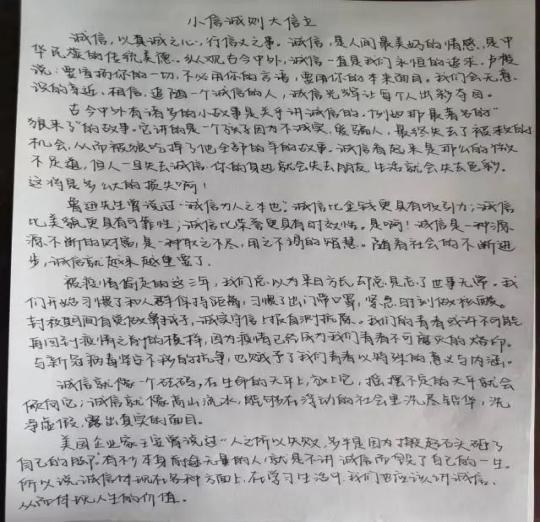 小信诚则大信立
诚信，以真诚之心，行信义之事。诚信，是人间最美妙的情感，是中
华民族的传统美德。纵观古今中外，诚信一直是我们永恒的追求。卢梭
说：要宣扬你的一切，不必用你的言语，要用你的本来面目。我们会无意
识的亲近，相信，追随一个诚信的人，诚信光辉让每个人出彩夺目。
古今中外有诸多的小故事是关于讲诚信的。例如那最著名的"
狼来了"的故事。它讲的是一个孩子因为不诚实，爱骗人，最终失去了被救的
机会，从而被狼吃掉了他全部的羊的故事。诚信看起来是那么的微
不足道，但人一旦失去诚信，你的身边就会失去朋友，生活就会失去色彩。
这将是多么大的损失啊！
鲁迅先生曾说过"诚信为人之本也"。诚信比金钱更具有吸引力；诚信
比美貌更具有可靠性；诚信比荣誉更具有时效性。是啊！诚信是一种源
源不断的财富，是一种取之不尽，用之不竭的智慧。随着社会的不断进
步，诚信就越来越重要了。
被疫情偷走的这三年，我们总以为来日方长却总是忘了世事无常。我
们开始习惯了和人群保持距离，习惯了出门带口罩，紧急时刻做核酸。
封校期间自觉做算抗子，诚实守信上报自测抗原。我们的青春或许不可能
再回到疫情之前的模样，因为疫情已经成为我们青春不可磨灭的烙印。
与新冠病毒坚定不移的抗争，也赋予了我们青春以特殊的意义与内涵。
诚信就像一个砝码，在生命的天平上，放上它，摇摆不定的天平就会
倾向它；诚信就像高山流水，能够在浮动的社会里洗尽铅华，洗
净虚假，露出真实的面目。
美国企业家王安曾说过"人之所以失败，多半是因为搬起石头砸了
自己的脚"。有不少本身前途无量的人，就是不讲诚信而毁了自己的一生。
所以说诚信体现在各种方面上，在学习生活中，我们也应该讲诚信，
从而体现人生的价值。